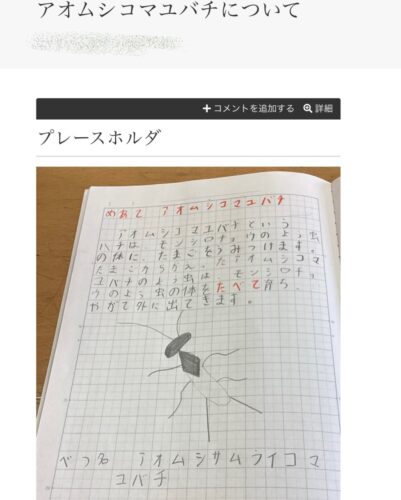 アオムシコマユバチについて
コメントを追加する 詳細
プレースホルダ
めあて アオムシコマユバチ
アオムシコマユバチという
ハチは、モンシロチョウのよう虫
の体に、たまごをうみつけます。
たまごからかえったアオムシコマ
ユバチのよう虫は モンシロチョ
ウのよう虫の体をたべて育ち、
やがて外に出てきます。
べつ名 アオムシサムライコマ
ユバチ